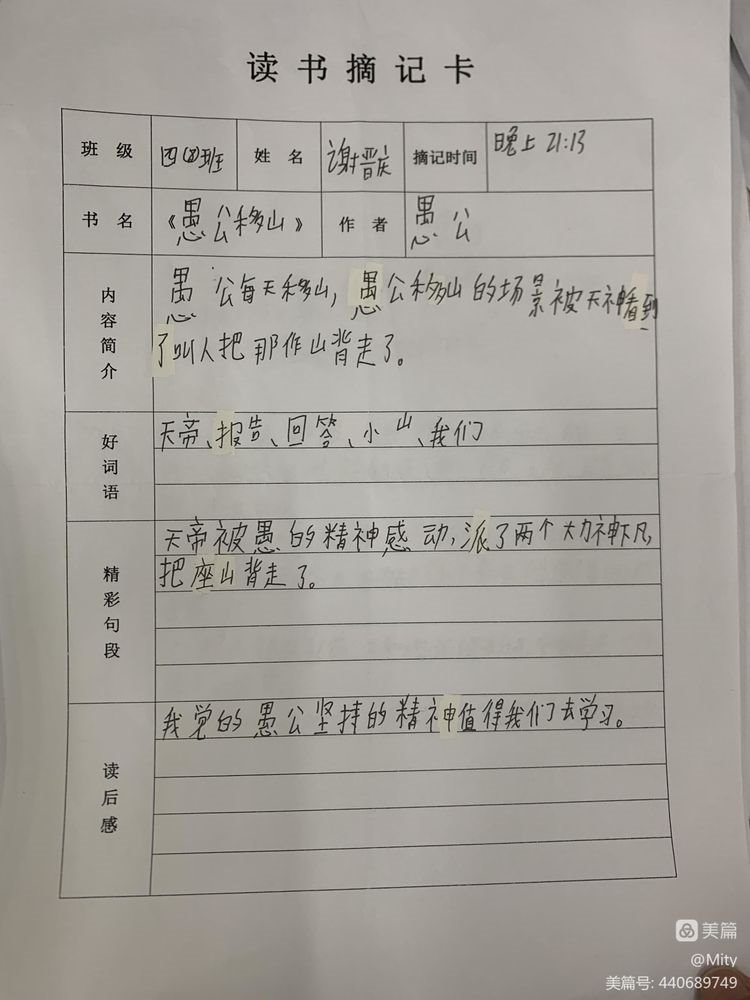 读书摘记卡
班级 四(2)班 姓名 谢晋庆 摘记时间 晚上21:13
书名 《愚公移山》 作者 愚公
内容简介
愚公每天移山,愚公移山的场景被天神看到
了叫人把那作山背走了。
好词语
天帝、报告、回答、小山、我们
精彩句段
天帝被愚的精神感动,派了两个大力神下凡,
把座山背走了。
读后感
我觉的愚公坚持的精神值得我们去学习。
美篇
@Mity
美篇号: 440689749